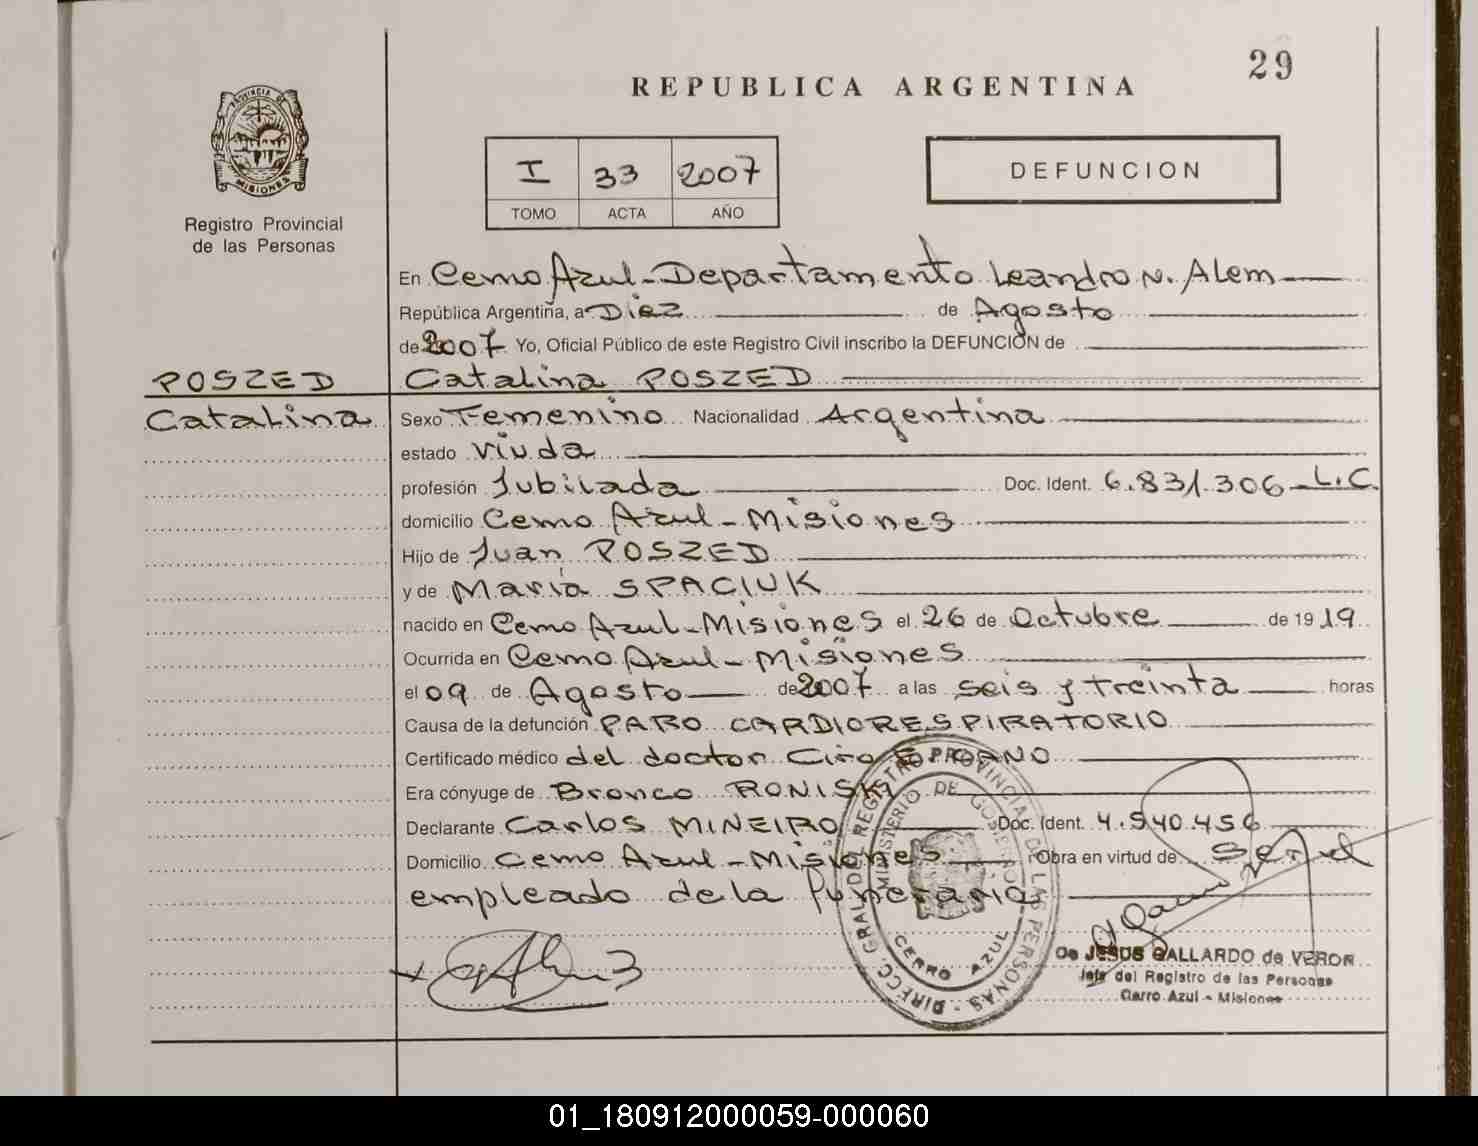 29
REPUBLICA ARGENTINA
PROVINCIA DE
MISIONES
Registro Provincial
de las Personas
I 33 2007
TOMO ACTA AÑO
DEFUNCION
En Cerro Azul - Departamento Leandro N. Alem
República Argentina, a Diez de Agosto
de 2007. Yo, Oficial Público de este Registro Civil inscribo la DEFUNCIÓN de
POSZED Catalina POSZED
Catalina Sexo Femenino Nacionalidad Argentina
estado viuda
profesión Jubilada Doc. Ident. 6.831.306 - L.C.
domicilio Cerro Azul - Misiones
Hijo de Juan POSZED
y de María SPACIUK
nacido en Cerro Azul - Misiones el 26 de Octubre de 1919
Ocurrida en Cerro Azul - Misiones
el 09 de Agosto de 2007 a las seis y treinta horas
Causa de la defunción PARO CARDIORESPIRATORIO
Certificado médico del doctor Ciro
Era cónyuge de Bronco RONISKI
Declarante Carlos MINEIRO Doc. Ident. 4.540.456
Domicilio Cerro Azul - Misiones Obra en virtud de ser el
empleado de la funeraria
DIRECC. GRAL. DEL REGISTRO PROVINCIAL DE LAS PERSONAS -
MINISTERIO DE GOBIERNO
CERRO AZUL
De JESUS GALLARDO de VERON
Jefe del Registro de las Personas
Cerro Azul - Misiones
01_180912000059-000060